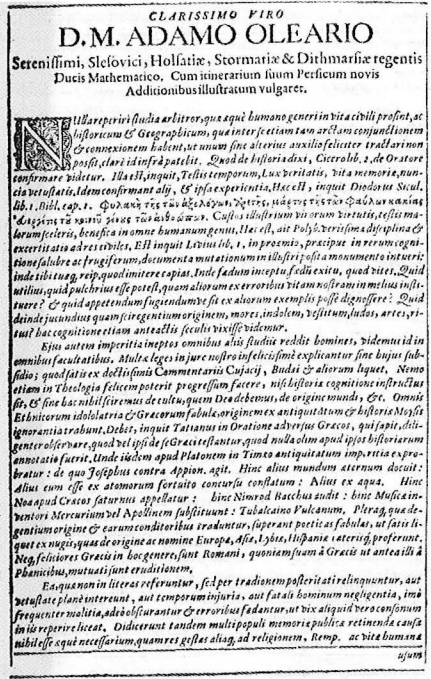 CLARISSIMO VIRO
D. M. ADAMO OLEARIO
Serenissimi, Slesovici, Holsatiæ, Stormariæ & Dithmarsiæ regentis
Ducis Mathematico, Cum itinerarium suum Persicum novis
Additionibus illustratum vulgaret.
Nulla reperiri studia arbitror, quæ æquè humano generi in vita civili prosint, ac
historicum & Geographicum, quæ inter se etiam tam arctam conjunctionem
& connexionem habent, ut unum sine alterius auxilio feliciter tractari non
possit, clarè id infrà patebit. Quod de historia dixi, Cicero lib. 2. de Oratore
confirmare videtur. Illa est, inquit, Testis temporum, Lux veritatis, vita memoriæ, nun-
cia vetustatis, Idem confirmant alij, & ipsa experientia, Hæc est, inquit Diodorus Sicul.
lib. 1. Bibl. cap. 1. φυλακὴ τῆς τῶν ἀξιολόγων ἀρετῆς, μάρτυς τῆς τῶν φαύλων κακίας
εὐεργέτις τοῦ κοινοῦ γένους τῶν ἀνθρώπων. Custos illustrium virorum virtutis, testis ma-
lorum sceleris, benefica in omne humanum genus. Hæc est, ait Polyb. verissima disciplina &
exercitatio ad res civiles, Est inquit Livius lib. 1, in proœmio, præcipue in rerum cogni-
tione salubre ac frugiferum, documenta mutationum in illustri posita monumento intueri:
inde tibi tuæq, reip, quod imitere capias. Inde fædum inceptu, fœdū exitu, quod vites, Quid
utilius, quid pulchrius esse potest, quam aliorum ex erroribus vitam nostram in melius insti-
tuere? & quid appetendum fugiendumve sit ex aliorum exemplis posse dignoscere? Quid
deinde jucundius quam scire gentium originem, mores, indolem, vestitum, ludos, artes, ri-
tus? hac cognitione etiam anteactis seculis vixisse videmur.
Ejus autem imperitia ineptos omnibus aliis studiis reddit homines, videmus id in
omnibus facultatibus. Multæ leges in jure nostro infelicissimè explicantur sine hujus sub-
sidio; quod satis ex doctissimis Commentariis Cujacij, Budæi & aliorum liquet. Nemo
etiam in Theologia felicem poterit progressum facere, nisi historiæ cognitione instructus
sit, & sine hac nihil sciremus de cultu, quem Deo debemus, de origine mundi, &c. Omnis
Ethnicorum idololatria & Græcorum fabulæ, originem ex antiquitatum & historiæ Moysis
ignorantia trahunt. Debet, inquit Tatianus in Oratione adversus Græcos, qui sapit, dili-
genter observare, quod vel ipsi de se Græci testantur, quod nulla olim apud ipsos historiarum
annotatio fuerit. Unde iisdem apud Platonem in Timæo antiquitatum imperitia expro-
bratur: de quo Josephus contra Appion. agit. Hinc alius mundum æternum docuit:
Alius eum esse ex atomorum fortuito concursu conflatum: Alius ex aqua. Hinc
Noa apud Græcos saturnus appellatur: hinc Nimrod Bacchus audit: hinc Musicæ in-
ventori Mercurium vel Apollinem substituunt: Tubalcaino Vulcanum. Pleraq, quæ de
gentium origine & earum conditoribus traduntur, superant poeticas fabulas, ut satis li-
quet ex nugis, quas de origine ac nomine Europæ, Asiæ, Lybiæ, Hispaniæ cæterisq, proferunt.
Neq, feliciores Græcis in hoc genere, sunt Romani, quoniam suam à Græcis ut ante à illi à
Phœnicibus, mutuati sunt eruditionem.
Ea, quæ non in literas referuntur, sed per traditionem posteritati relinquuntur, aut
vetustate planè intereunt, aut temporum injuria, aut fatali hominum negligentia, imò
frequenter malitia, adeò obscurantur & erroribus fœdantur, ut vix aliquid vero consonum
in iis reperire liceat. Didicerunt tandem multi populi memoria publica retinendæ causa
nihil esse æquè necessarium, quam res gestas aliaq, ad religionem, Remp. ac vitæ humanæ
usum